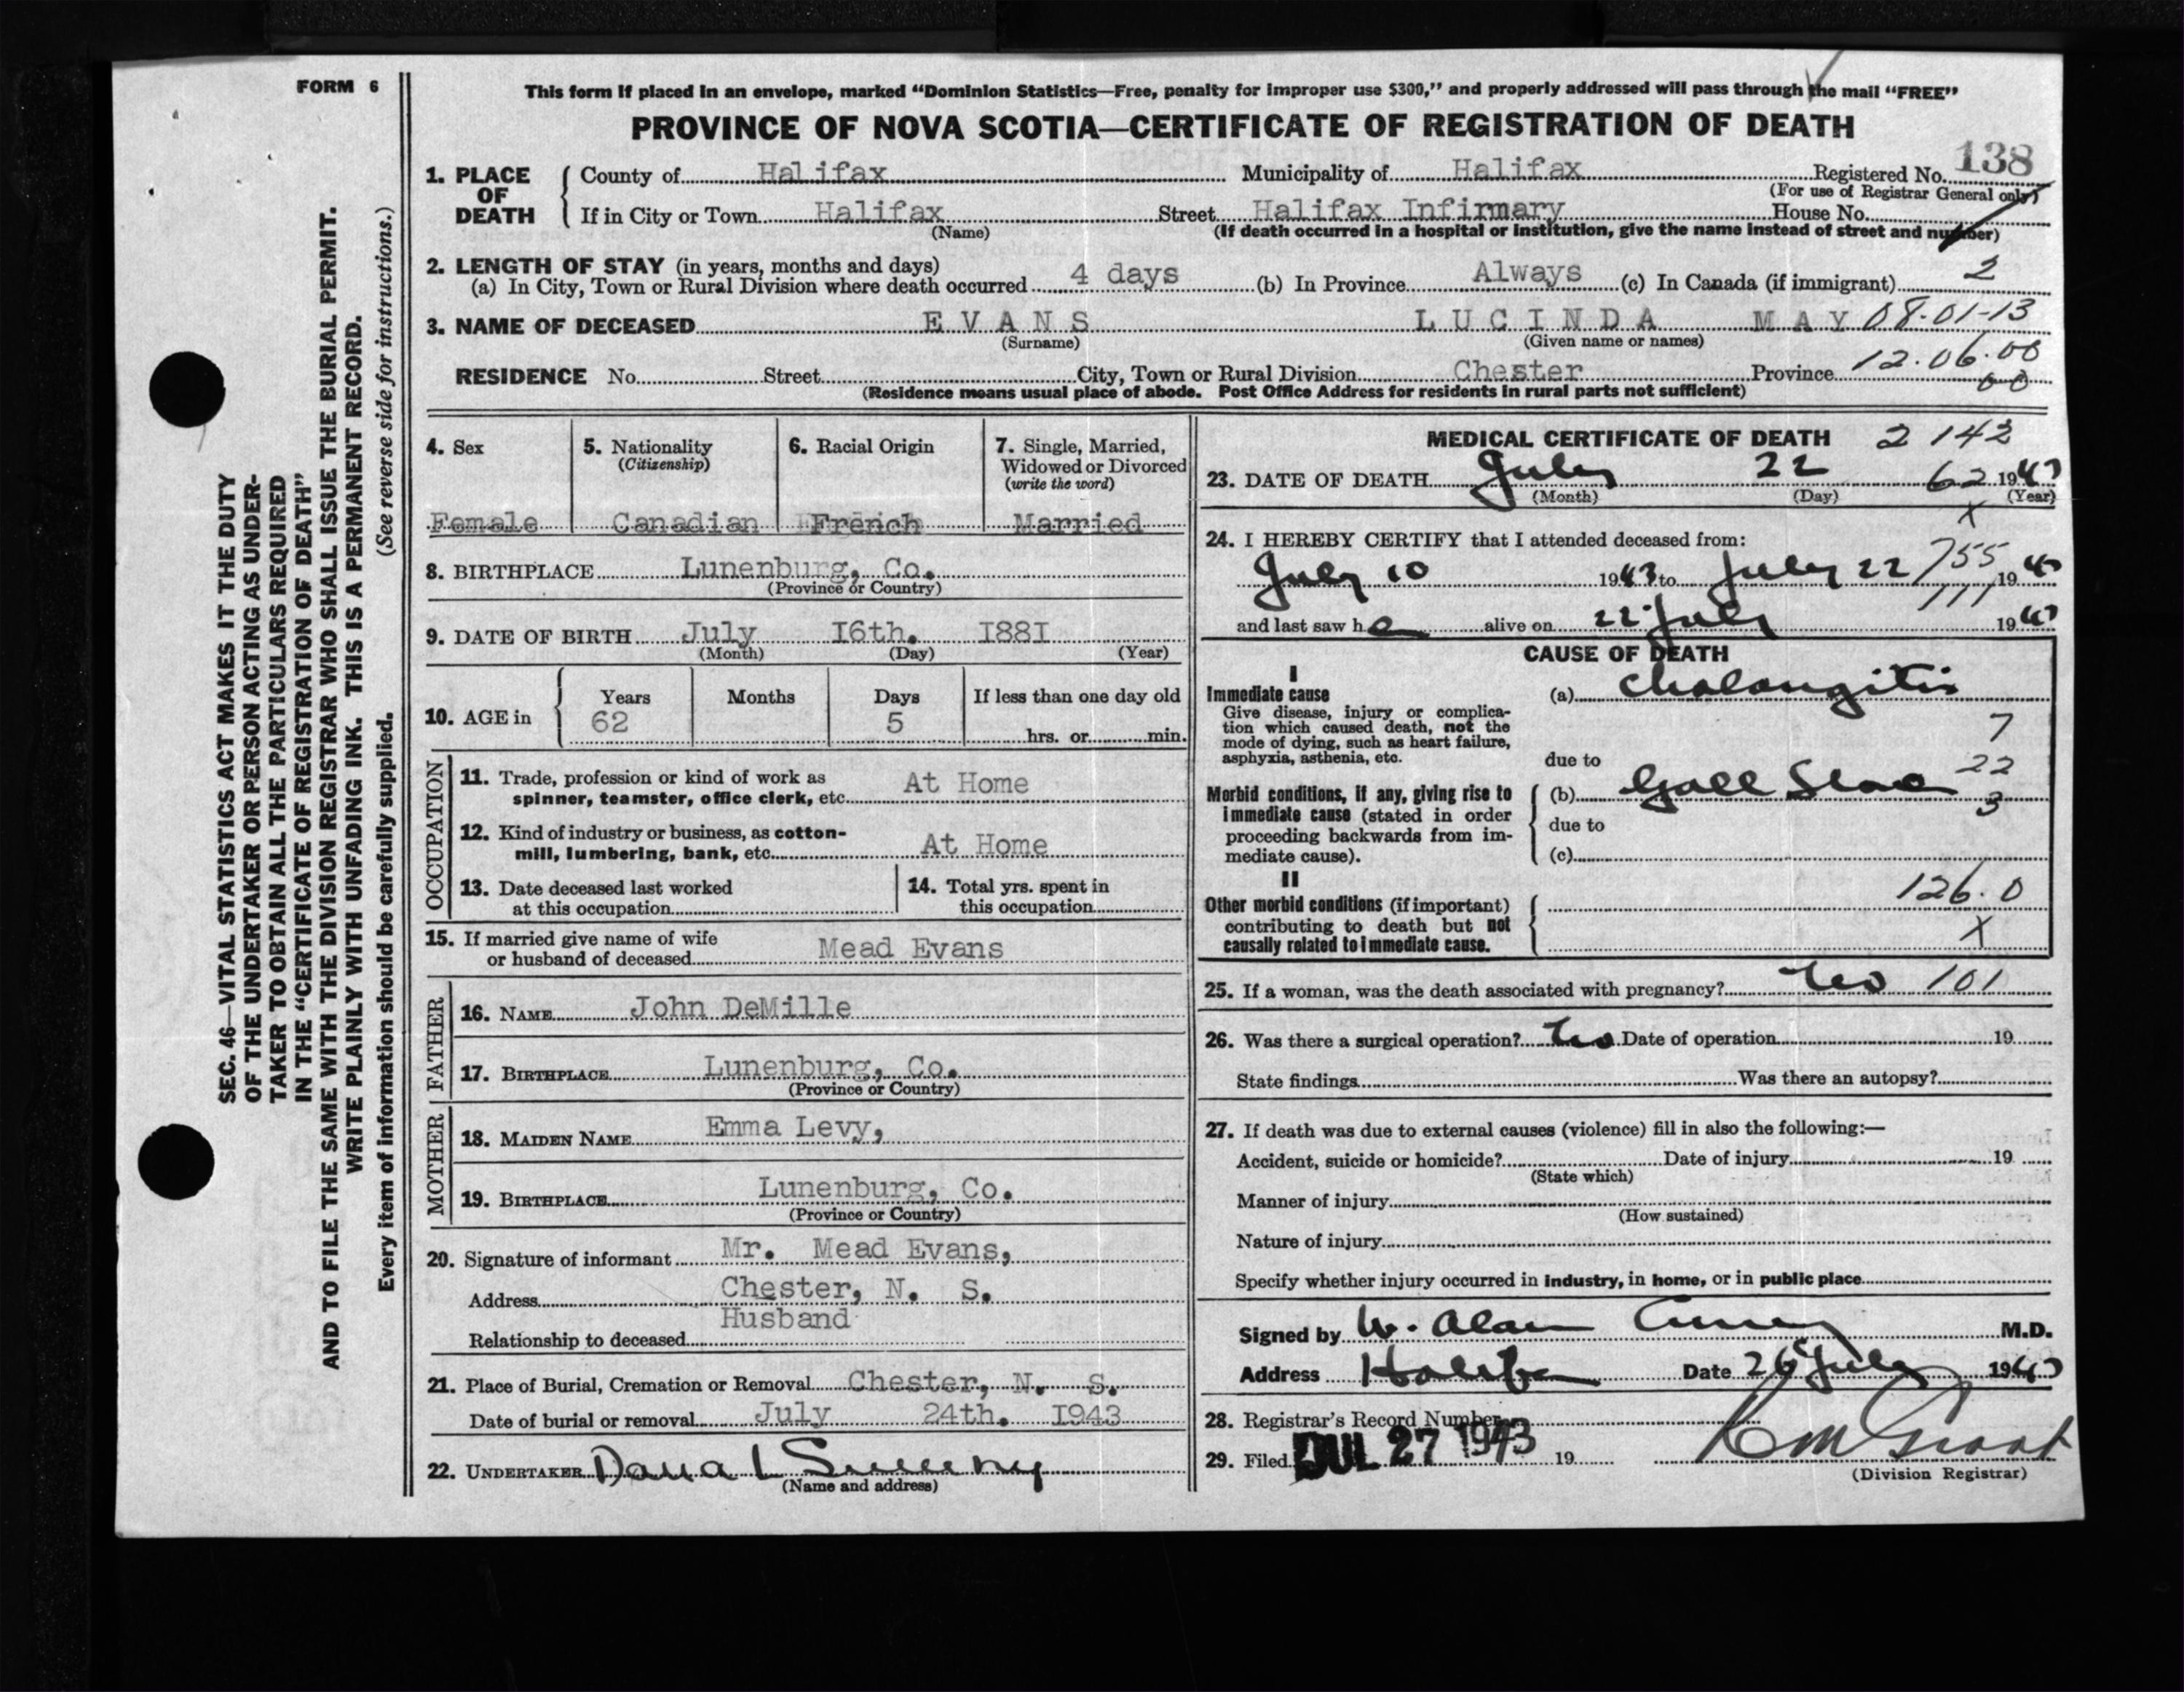 FORM 6
This form if placed in an envelope, marked “Dominion Statistics—Free, penalty for improper use $300,” and properly addressed will pass through the mail “FREE”
PROVINCE OF NOVA SCOTIA—CERTIFICATE OF REGISTRATION OF DEATH
138
1. PLACE OF DEATH County of Halifax Municipality of Halifax Registered No.
(For use of Registrar General only)
If in City or Town Halifax Street Halifax Infirmary House No.
(Name) (If death occurred in a hospital or institution, give the name instead of street and number)
2. LENGTH OF STAY (in years, months and days)
(a) In City, Town or Rural Division where death occurred 4 days (b) In Province Always (c) In Canada (if immigrant) 2
3. NAME OF DECEASED EVANS LUCINDA MAY 08-01-13
(Surname) (Given name or names)
12.06.00
RESIDENCE No. Street City, Town or Rural Division Chester Province
(Residence means usual place of abode. Post Office Address for residents in rural parts not sufficient)
4. Sex
Female
5. Nationality
(Citizenship)
Canadian
6. Racial Origin
French
7. Single, Married,
Widowed or Divorced
(write the word)
Married
8. BIRTHPLACE Lunenburg, Co.
(Province or Country)
9. DATE OF BIRTH July I6th. I88I
(Month) (Day) (Year)
10. AGE in
Years Months Days If less than one day old
62 5 hrs. or min.
OCCUPATION
11. Trade, profession or kind of work as
spinner, teamster, office clerk, etc. At Home
12. Kind of industry or business, as cotton-
mill, lumbering, bank, etc. At Home
13. Date deceased last worked
at this occupation
14. Total yrs. spent in
this occupation
15. If married give name of wife
or husband of deceased Mead Evans
FATHER
16. NAME John DeMille
17. BIRTHPLACE Lunenburg, Co.
(Province or Country)
MOTHER
18. MAIDEN NAME Emma Levy,
19. BIRTHPLACE Lunenburg, Co.
(Province or Country)
20. Signature of informant Mr. Mead Evans,
Address Chester, N. S.
Relationship to deceased Husband
21. Place of Burial, Cremation or Removal Chester, N. S.
Date of burial or removal July 24th. I943
22. UNDERTAKER Dana L Sweeny
(Name and address)
MEDICAL CERTIFICATE OF DEATH 2 142
23. DATE OF DEATH July 22 62 1943
(Month) (Day) (Year)
X
24. I HEREBY CERTIFY that I attended deceased from:
July 10 1943 to July 22 755 1943
111
and last saw h alive on 22 July 1943
CAUSE OF DEATH
I
Immediate cause
Give disease, injury or complica-
tion which caused death, not the
mode of dying, such as heart failure,
asphyxia, asthenia, etc.
(a) Cholangitis
7
due to
22
Morbid conditions, if any, giving rise to
immediate cause (stated in order
proceeding backwards from im-
mediate cause).
(b) Gall
3
due to
(c)
II
Other morbid conditions (if important)
contributing to death but not
causally related to immediate cause.
126.0
X
25. If a woman, was the death associated with pregnancy? No 101
26. Was there a surgical operation? No Date of operation 19
State findings Was there an autopsy?
27. If death was due to external causes (violence) fill in also the following:—
Accident, suicide or homicide? Date of injury 19
(State which)
Manner of injury
(How sustained)
Nature of injury
Specify whether injury occurred in industry, in home, or in public place
Signed by W. Alan M.D.
Address Halifax Date 26 July 1943
28. Registrar's Record Number
29. Filed JUL 27 1943 19
(Division Registrar)
SEC. 46—VITAL STATISTICS ACT MAKES IT THE DUTY
OF THE UNDERTAKER OR PERSON ACTING AS UNDER-
TAKER TO OBTAIN ALL THE PARTICULARS REQUIRED
IN THE “CERTIFICATE OF REGISTRATION OF DEATH”
AND TO FILE THE SAME WITH THE DIVISION REGISTRAR WHO SHALL ISSUE THE BURIAL PERMIT.
WRITE PLAINLY WITH UNFADING INK. THIS IS A PERMANENT RECORD.
Every item of information should be carefully supplied. (See reverse side for instructions.)